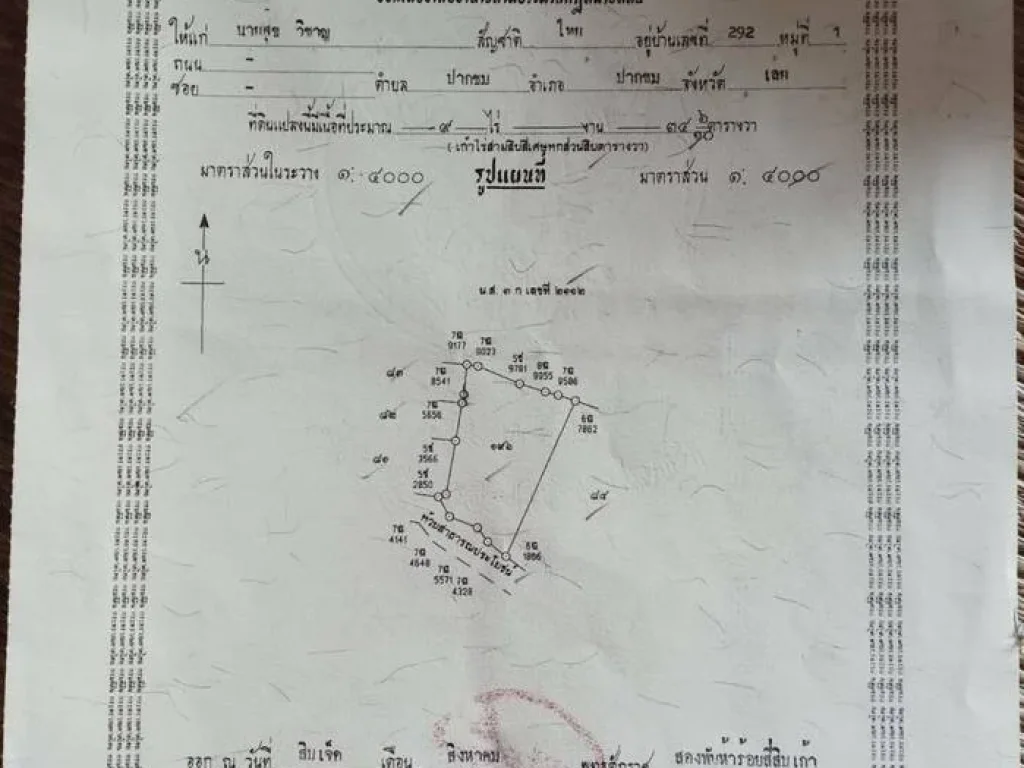 ให้แก่ นายสุข วิชาญ สัญชาติ ไทย อยู่บ้านเลขที่ 292 หมู่ที่ ๑
ถนน -
ซอย - ตำบล ปากชม อำเภอ ปากชม จังหวัด เลย
ที่ดินแปลงนี้มีเนื้อที่ประมาณ ๙ ไร่ งาน ๓๔ ๖/๑๐ ตารางวา
(เก้าไร่สามสิบสี่เศษหกส่วนสิบตารางวา)
มาตราส่วนในระวาง ๑: ๔๐๐๐ รูปแผนที่ มาตราส่วน ๑: ๔๐๐๐
น
น.ส. ๓ ก เลขที่ ๒๑๑๒
7ฉ 9177
7ฉ 8023
5ช 9781
8ฉ 9955
7ฉ 9586
๘๓
7ฉ 8541
6ฉ 7862
๘๒
7ฉ 5656
๑๙๖
5ช 3566
๘๑
5ช 2850
๘๔
ห้วยสาธารณประโยชน์
7ฉ 4141
7ฉ 4648
7ฉ 5571
7ฉ 4328
6ฉ 1866
ออก ณ วันที่ สิบเจ็ด เดือน สิงหาคม พุทธศักราช สองพันห้าร้อยสี่สิบเก้า